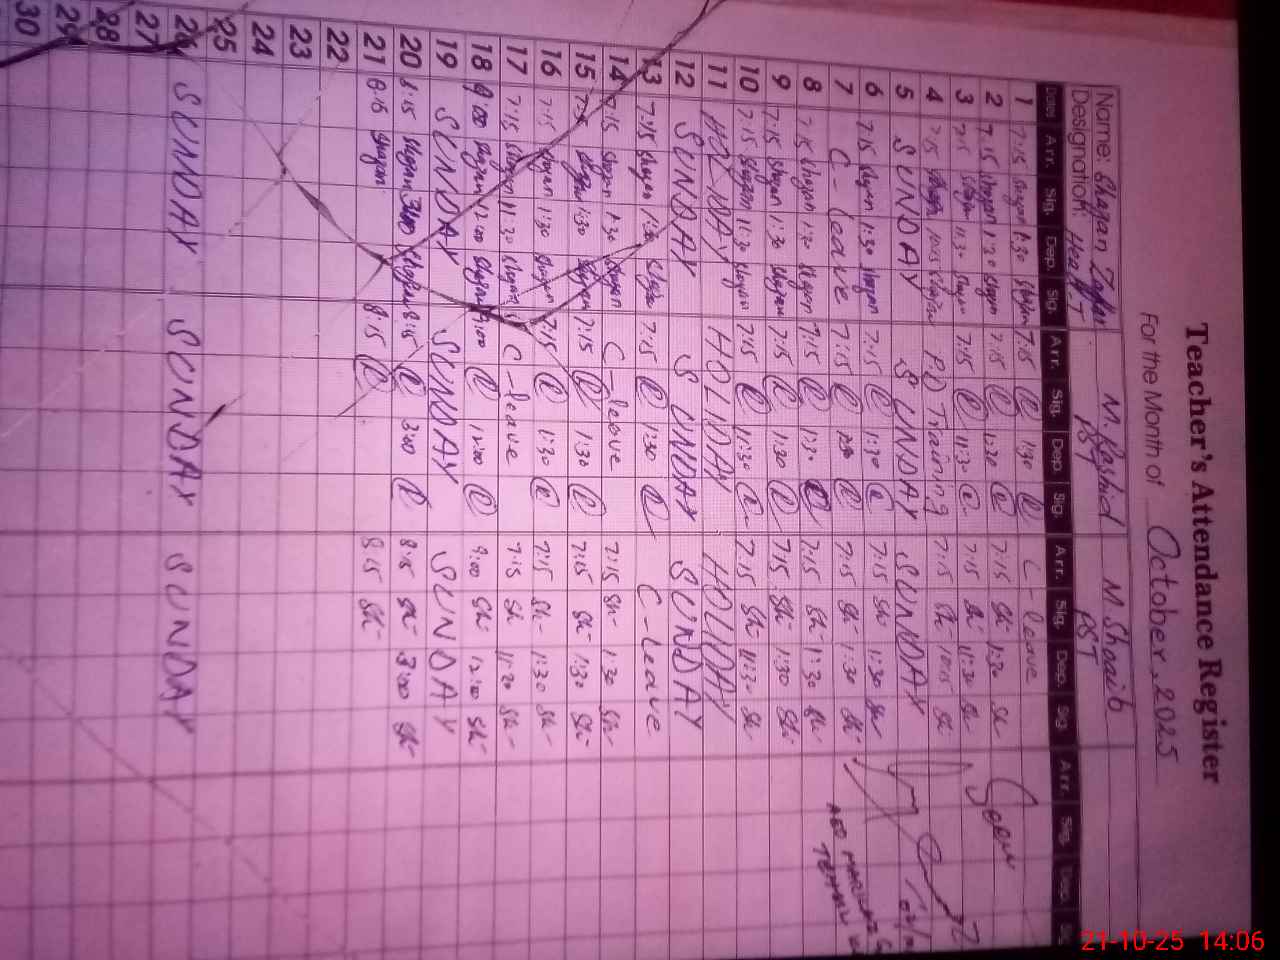 Teacher's Attendance Register
For the Month of October, 2025
Name: Shagan Zaffar M. Rashid M. Shoaib
Designation: Head T PST PST
Dates Arr. Sig. Dep. Sig. Arr. Sig. Dep. Sig. Arr. Sig. Dep. Sig. Arr. Sig. Dep. Sig.
1 7:15 Shagan 1:30 Shagan 7:15 1:30 C-leave
2 7:15 Shagan 1:30 Shagan 7:15 1:30 7:15 Sh- 1:30 Sh- Seen
3 7:15 Shagan 11:30 Shagan 7:15 11:30 7:15 Sh- 11:30 Sh-
4 7:15 Shagan 10:15 Shagan P.D Training 7:15 Sh- 10:15 Sh-
5 SUNDAY SUNDAY SUNDAY
6 7:15 Shagan 1:30 Shagan 7:15 1:30 7:15 Sh- 1:30 Sh-
7 C-leave 7:15 1:30 7:15 Sh- 1:30 Sh-
8 7:15 Shagan 1:30 Shagan 7:15 1:30 7:15 Sh- 1:30 Sh- AEO
9 7:15 Shagan 1:30 Shagan 7:15 1:30 7:15 Sh- 1:30 Sh-
10 7:15 Shagan 11:30 Shagan 7:15 11:30 7:15 Sh- 11:30 Sh-
11 HOLIDAY HOLIDAY HOLIDAY
12 SUNDAY SUNDAY SUNDAY
13 7:15 Shagan 1:30 Shagan 7:15 1:30 C-leave
14 7:15 Shagan 1:30 Shagan C-leave 7:15 Sh- 1:30 Sh-
15 7:15 Shagan 1:30 Shagan 7:15 1:30 7:15 Sh- 1:30 Sh-
16 7:15 Shagan 1:30 Shagan 7:15 1:30 7:15 Sh- 1:30 Sh-
17 7:15 Shagan 11:30 Shagan C-leave 7:15 Sh 11:30 Sh-
18 9:00 Shagan 12:00 Shagan 9:00 12:00 9:00 Sh- 12:00 Sh-
19 SUNDAY SUNDAY SUNDAY
20 8:15 Shagan 3:00 Shagan 8:15 3:00 8:15 Sh- 3:00 Sh-
21 8:15 Shagan 8:15 8:15 Sh-
22
23
24
25
26 SUNDAY SUNDAY SUNDAY
27
28
29
30
21-10-25 14:06